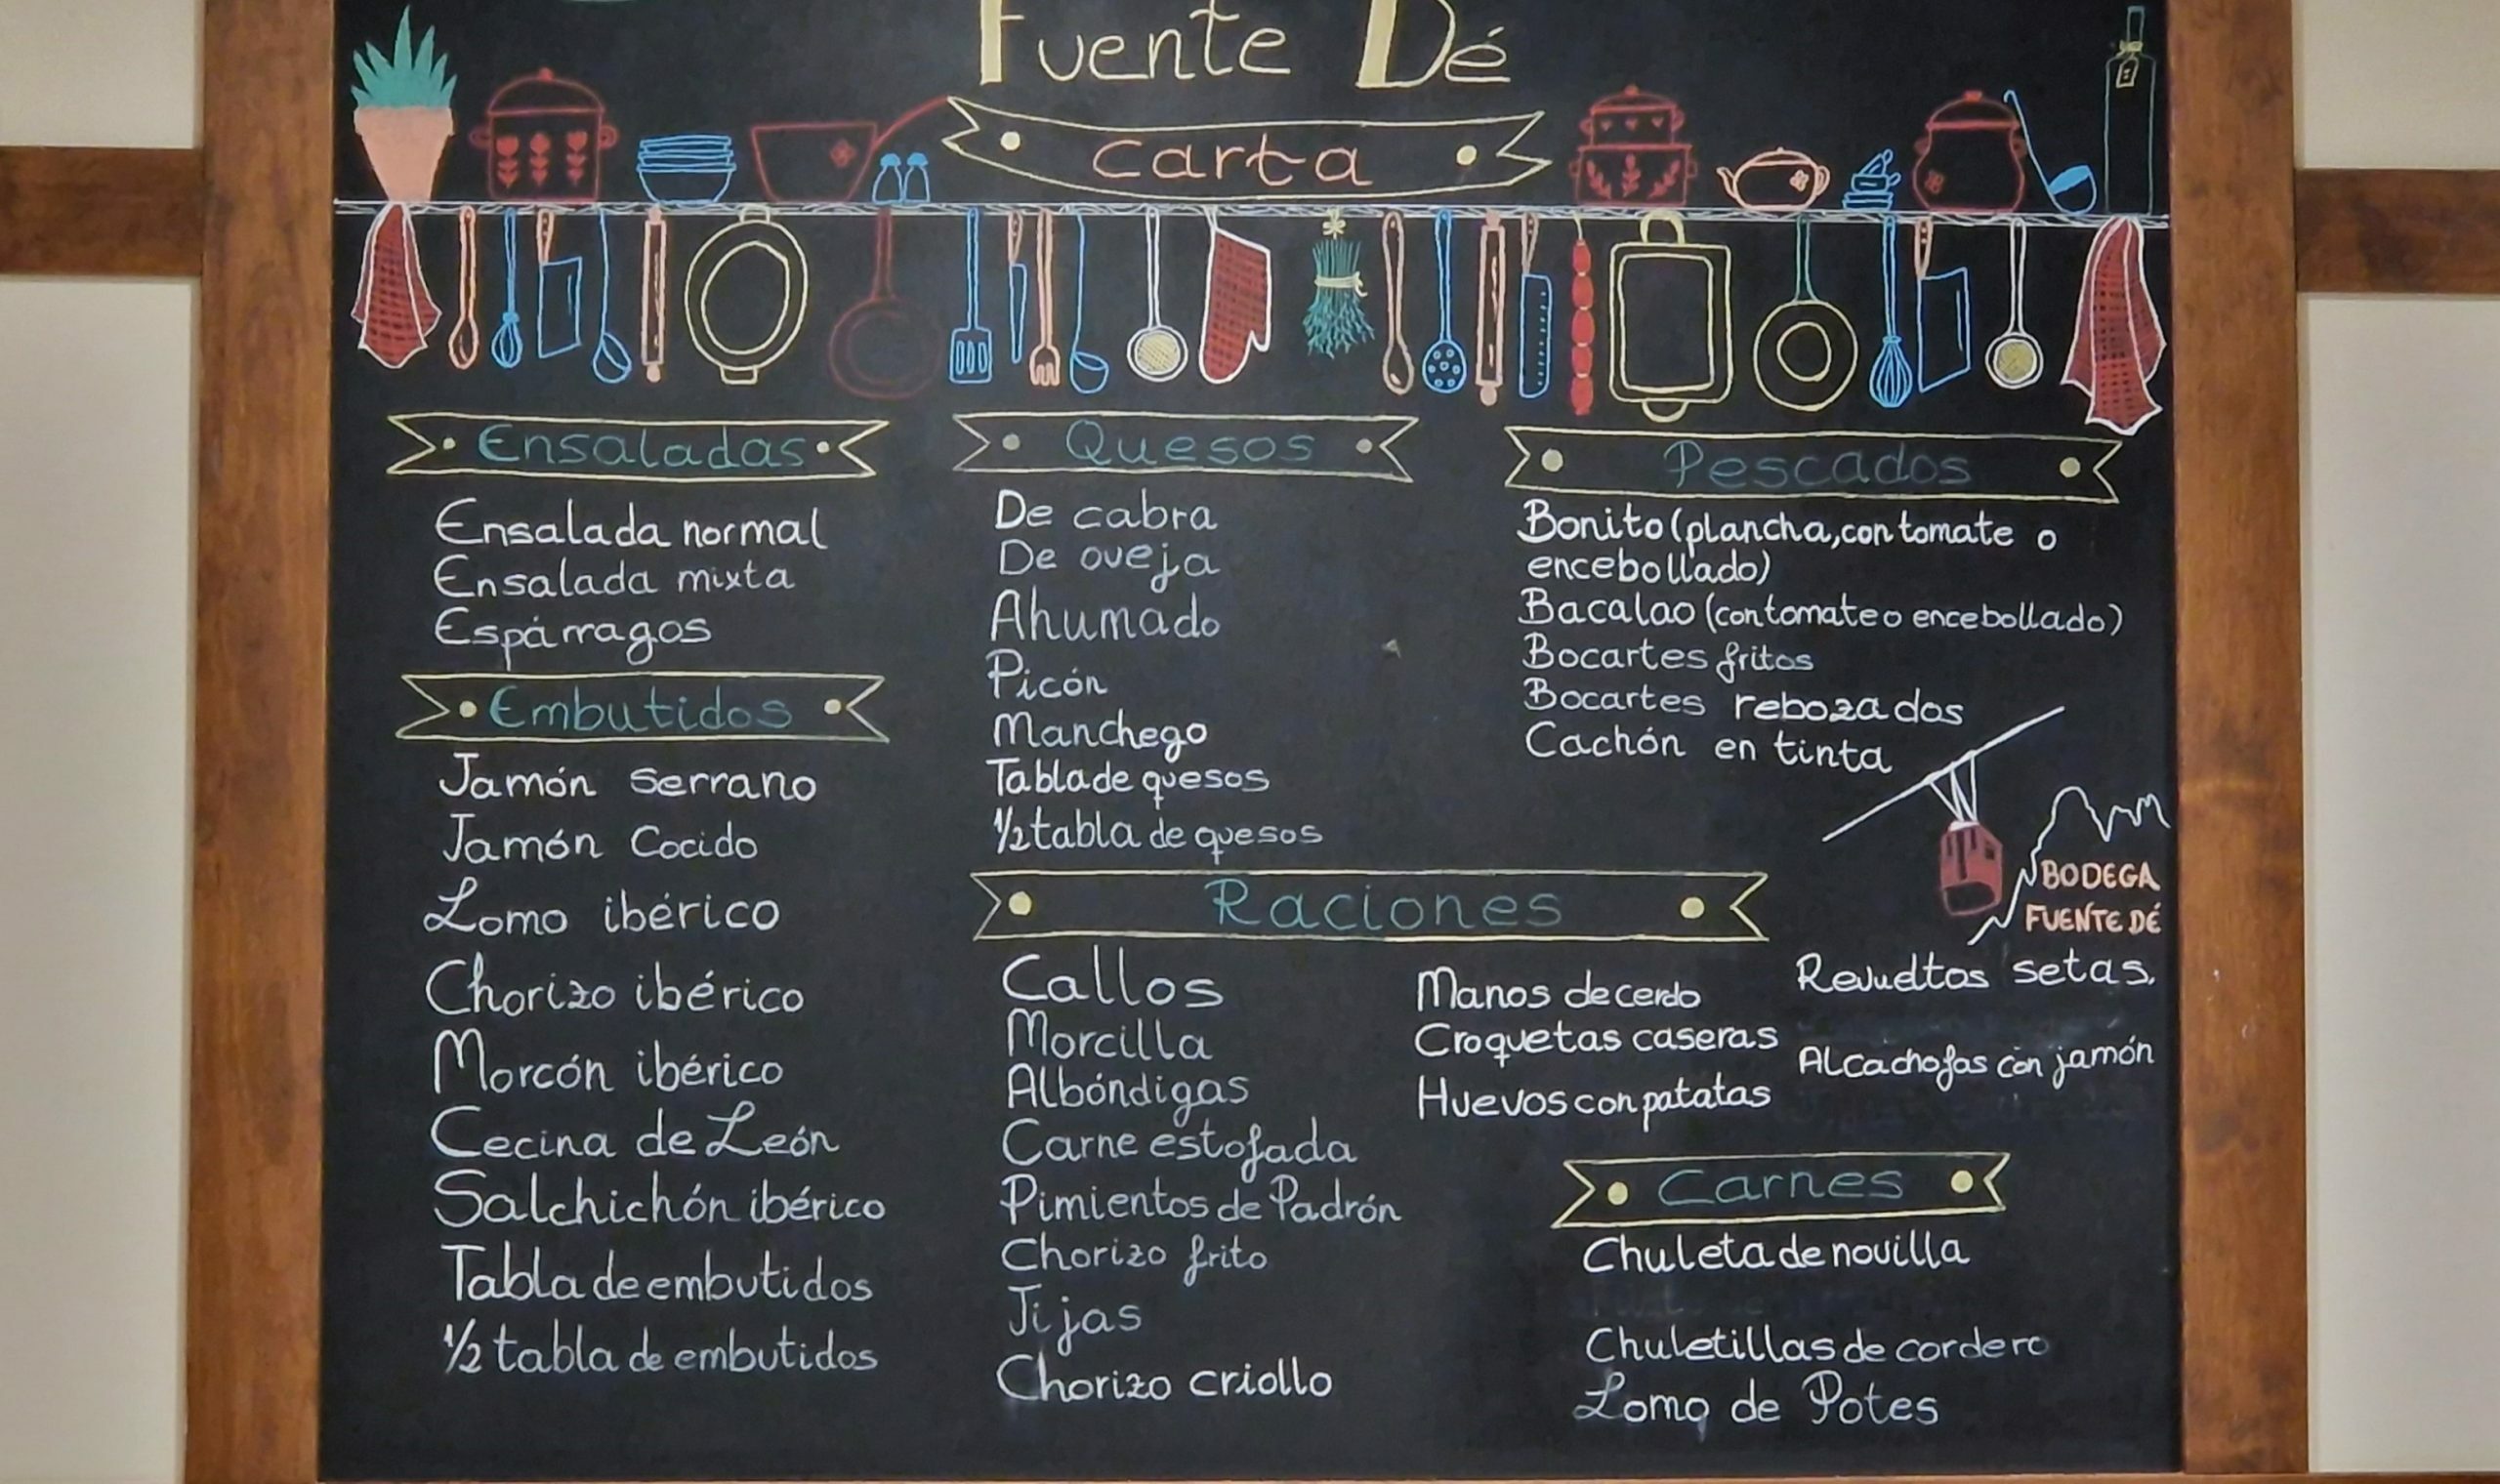 Fuente Dé
carta
Ensaladas
Ensalada normal
Ensalada mixta
Espárragos
Embutidos
Jamón serrano
Jamón Cocido
Lomo ibérico
Chorizo ibérico
Morcón ibérico
Cecina de León
Salchichón ibérico
Tabla de embutidos
½ tabla de embutidos
Quesos
De cabra
De oveja
Ahumado
Picón
Manchego
Tabla de quesos
½ tabla de quesos
Pescados
Bonito (plancha, con tomate o
encebollado)
Bacalao (con tomate o encebollado)
Bocartes fritos
Bocartes rebozados
Cachón en tinta
BODEGA
FUENTE DÉ
Raciones
Callos
Morcilla
Albóndigas
Carne estofada
Pimientos de Padrón
Chorizo frito
Jijas
Chorizo criollo
Manos de cerdo
Croquetas caseras
Huevos con patatas
Revueltos setas.
Alcachofas con jamón
Carnes
Chuleta de novilla
Chuletillas de cordero
Lomo de Potes